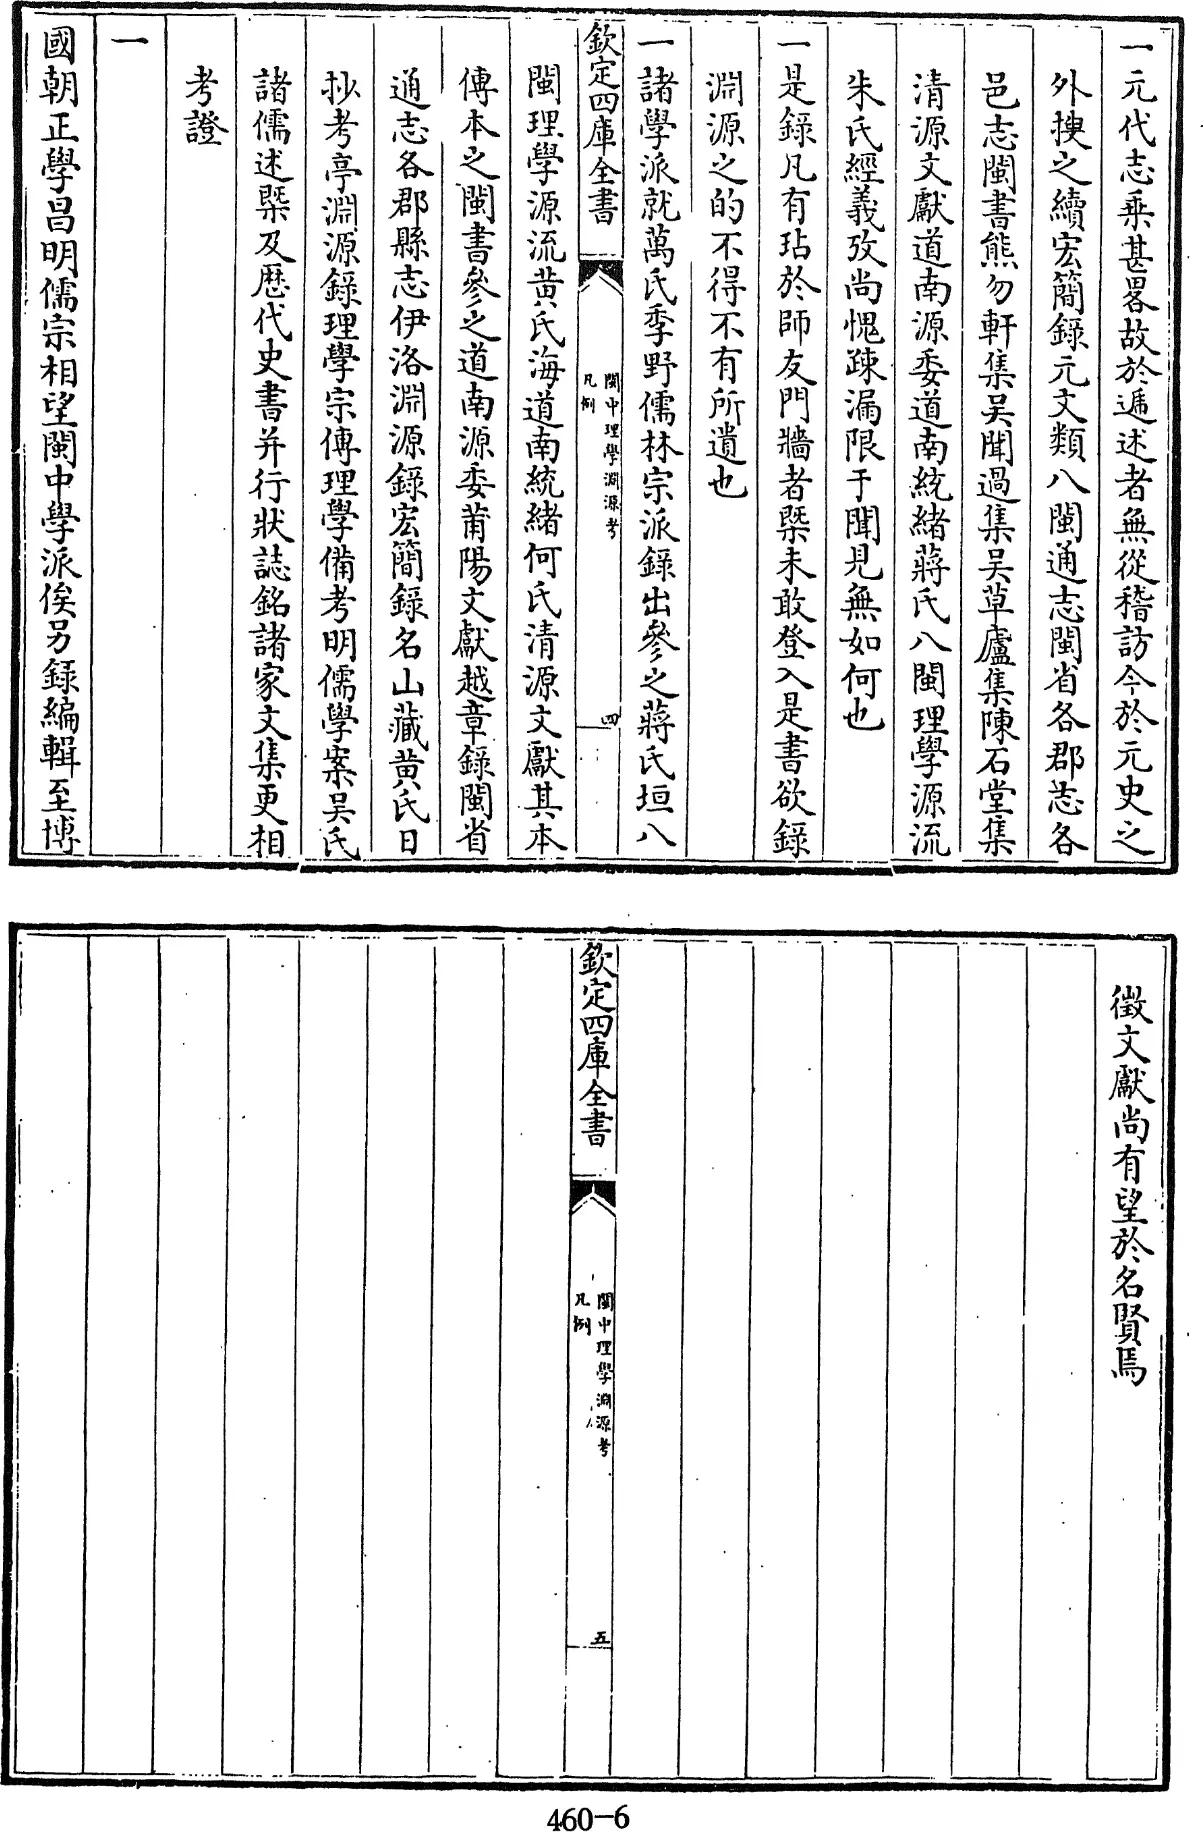 一元代志乘甚畧故於遞述者無從稽訪今於元史之
外搜之續宏簡錄元文類八閩通志閩省各郡志各
邑志閩書熊勿軒集吴聞過集吴草廬集陳石堂集
清源文獻道南源委道南統緒蔣氏八閩理學源流
朱氏經義攷尚愧疎漏限于聞見無如何也
一是錄凡有玷於師友門牆者槩未敢登入是書欲錄
淵源之的不得不有所遺也
一諸學派就萬氏季野儒林宗派錄出參之蔣氏垣八
欽定四庫全書
閩中理學淵源考
凡例
四
閩理學源流黄氏海道南統緒何氏清源文獻其本
傳本之閩書參之道南源委莆陽文獻越章錄閩省
通志各郡縣志伊洛淵源錄宏簡錄名山藏黄氏日
抄考亭淵源錄理學宗傳理學備考明儒學案吴氏
諸儒述槩及歷代史書并行狀誌銘諸家文集更相
考證
一
國朝正學昌明儒宗相望閩中學派俟另錄編輯至博
徵文獻尚有望於名賢焉
欽定四庫全書
閩中理學淵源考
凡例
五
460-6